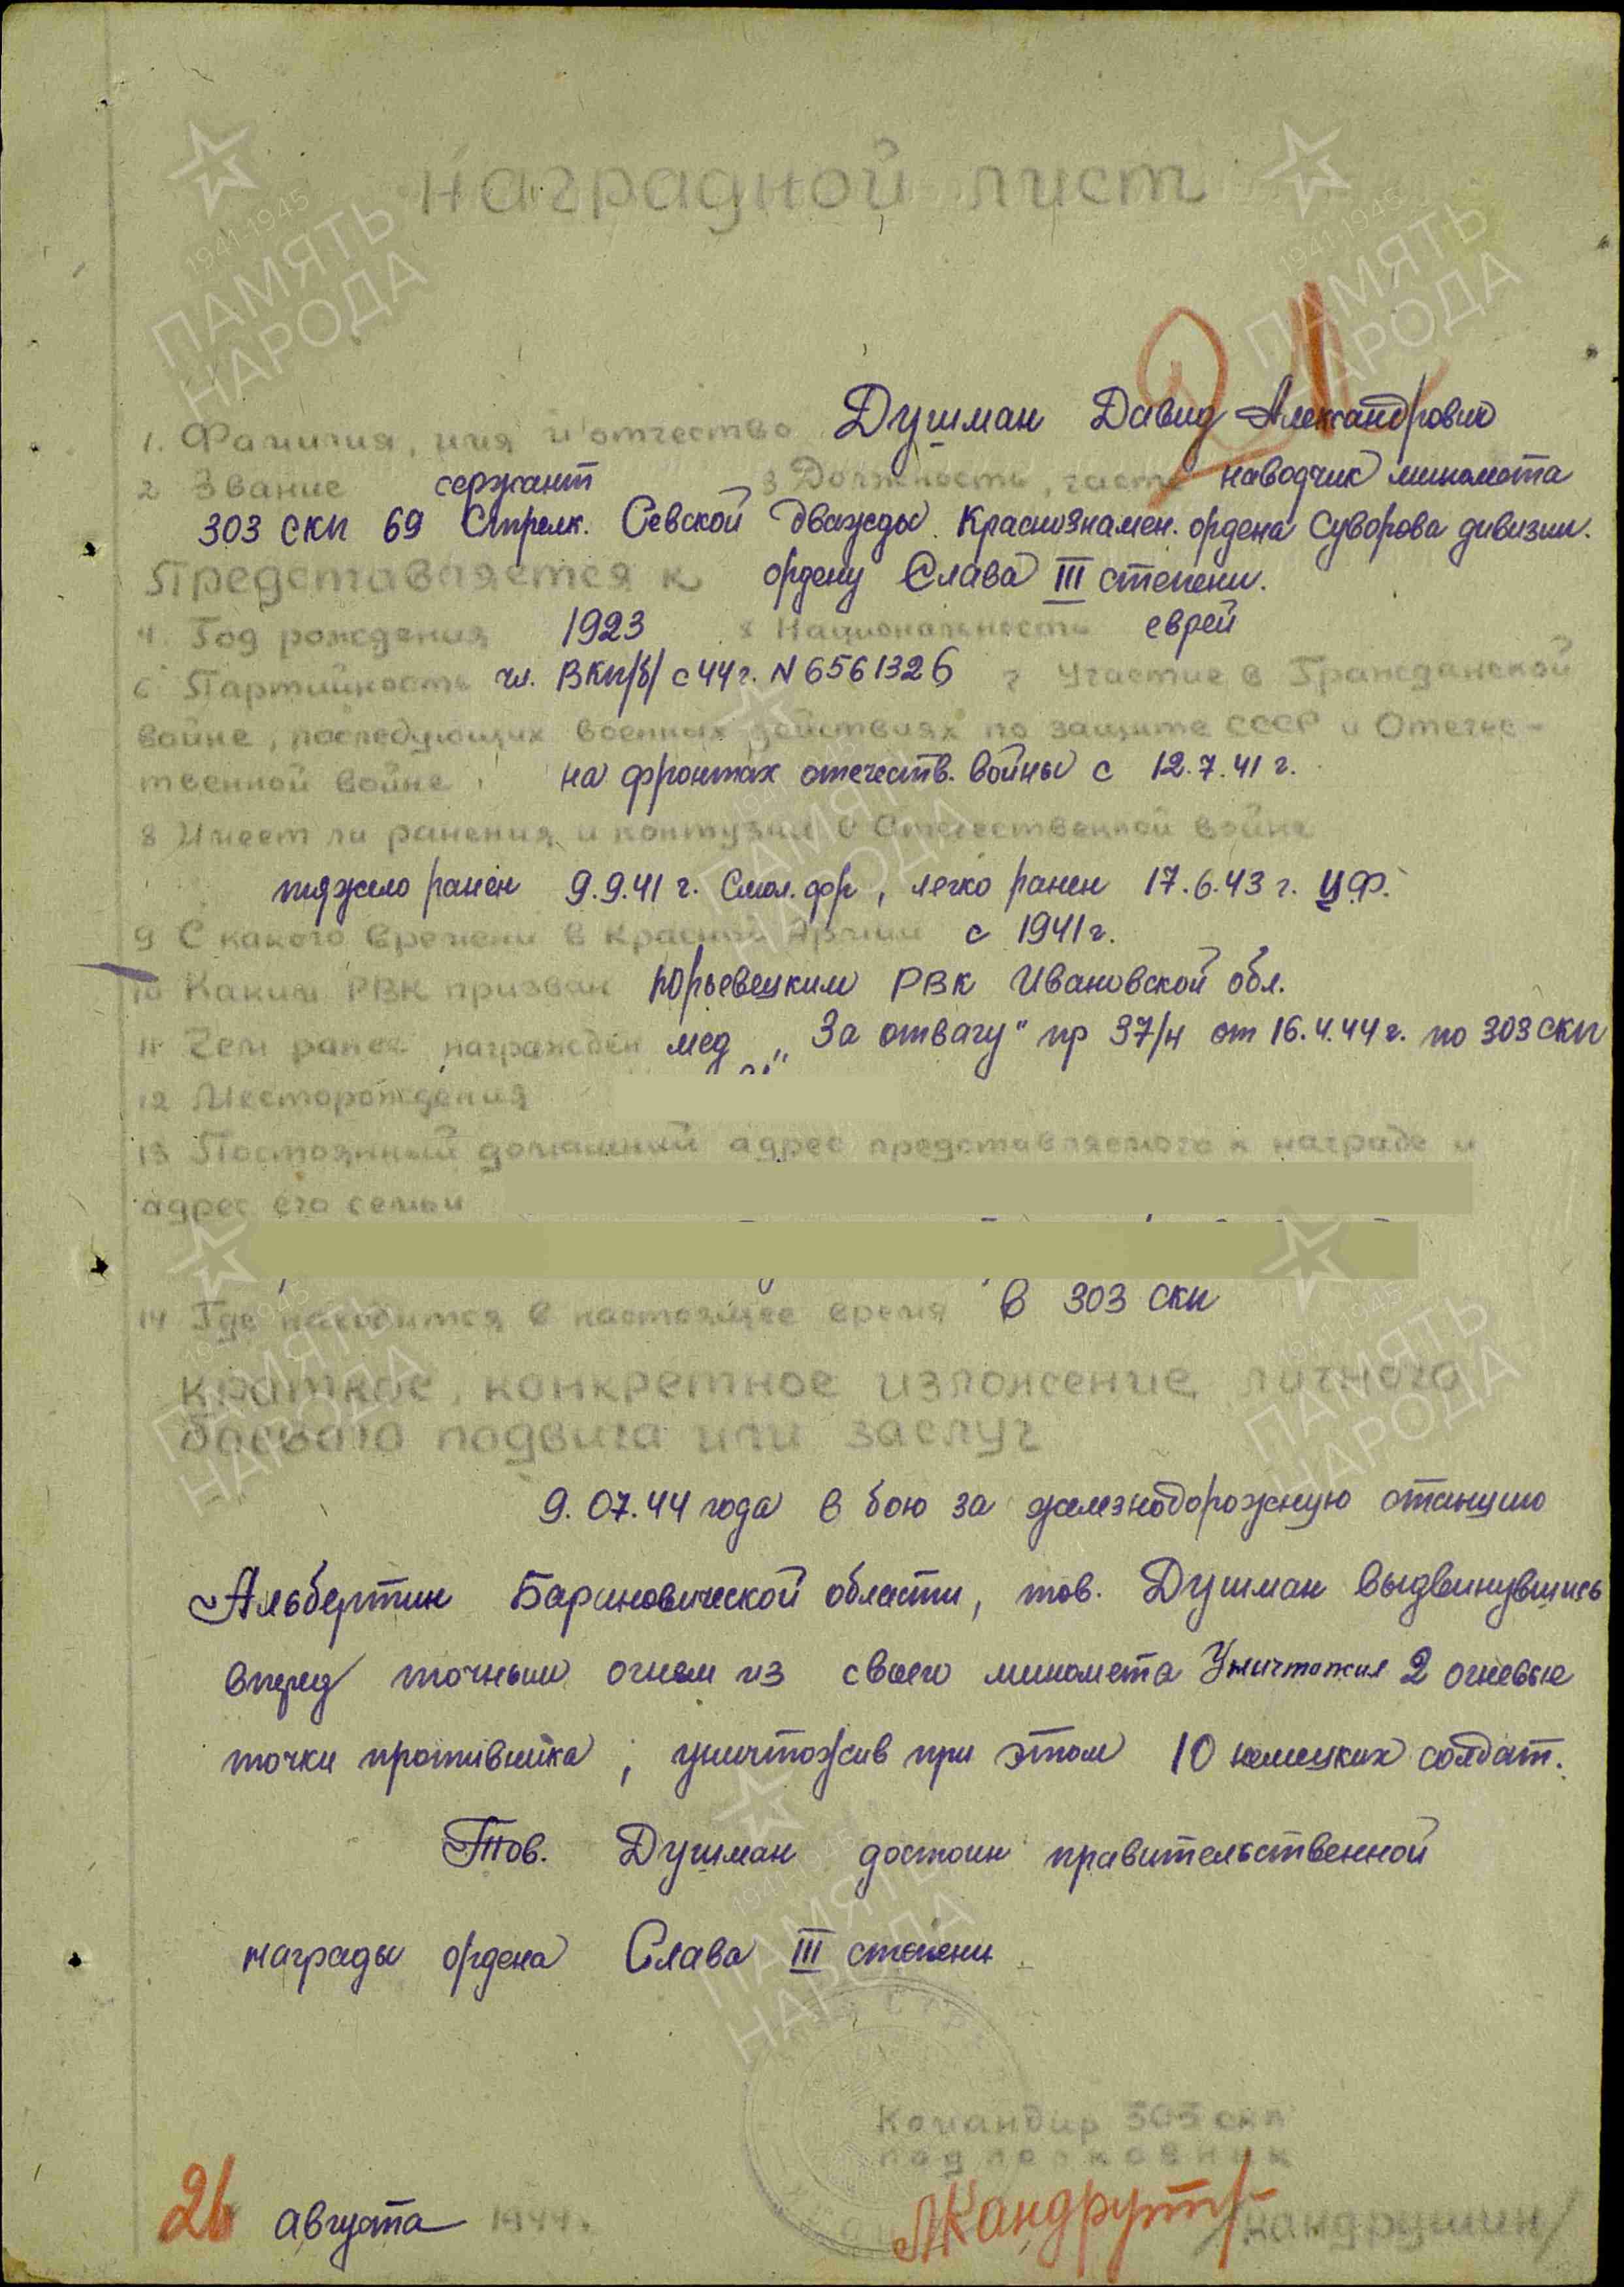 наградной лист
1. Фамилия, имя и отчество Душман Давид Александрович
2 Звание сержант 3 Должность, часть наводчик миномета
303 скп 69 Стрелк. Севской дважды Краснознамен. ордена Суворова дивизии.
Представляется к ордену Слава III степени.
4. Год рождения 1923 Национальность еврей
6 Партийность чл. ВКП/б/ с 44 г. N 6561326 7 Участие в Гражданской
войне, последующих военных действиях по защите СССР и Отечес-
твенной войне на фронтах отечеств. войны с 12.7.41 г.
8 Имеет ли ранения и контузии в Отечественной войне
тяжело ранен 9.9.41 г. Смол. фр, легко ранен 17.6.43 г. Ц.Ф.
9 С какого времени в Красной Армии с 1941 г.
10 Каким РВК призван Юрьевецким РВК Ивановской обл.
11 Чем ранее награжден мед „За отвагу" пр 37/н от 16.4.44 г. по 303 скп
12 Месторождения
13 Постоянный домашний адрес представляемого к награде и
адрес его семьи
14 Где находится в настоящее время в 303 скп
Краткое, конкретное изложение личного
боевого подвига или заслуг
9.07.44 года в бою за железнодорожную станцию
Альбертин Барановической области, тов. Душман выдвинувшись
вперед точным огнем из своего миномета Уничтожил 2 огневые
точки противника, уничтожив при этом 10 немецких солдат.
Тов. Душман достоин правительственной
награды ордена Слава III степени
Командир 303 скп
подполковник
26 августа 1944 г. /Кандрушин/
ПАМЯТЬ НАРОДА
1941-1945